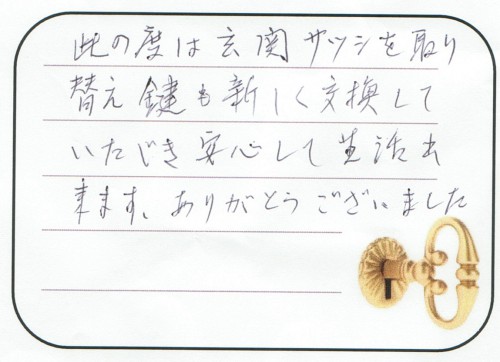 此の度は玄関サッシを取り
替え鍵も新しく交換して
いただき安心して生活出
来ます、ありがとうございました